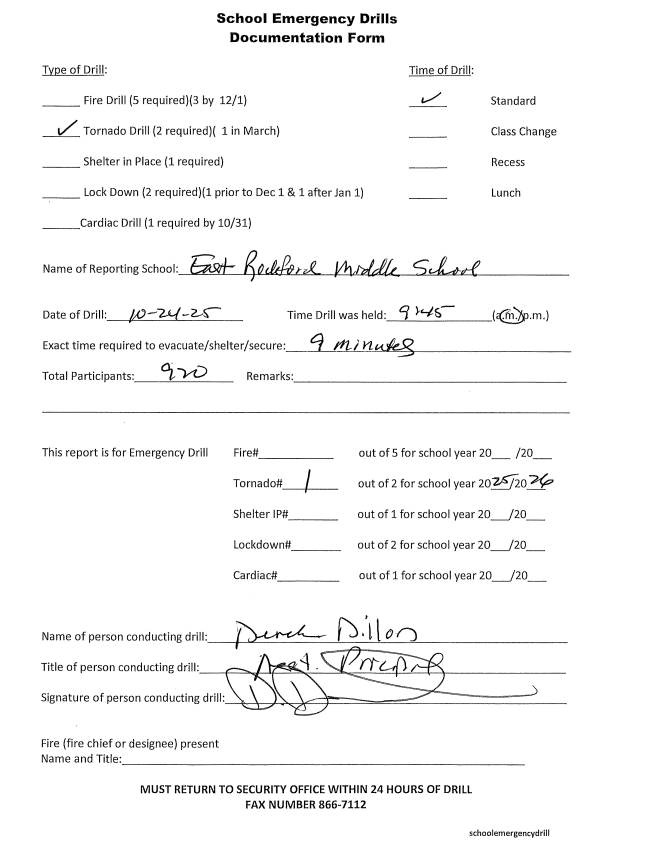 School Emergency Drills
Documentation Form
Type of Drill: Time of Drill:
______ Fire Drill (5 required)(3 by 12/1) ✓ Standard
✓ Tornado Drill (2 required)( 1 in March) ______ Class Change
______ Shelter in Place (1 required) ______ Recess
______ Lock Down (2 required)(1 prior to Dec 1 & 1 after Jan 1) ______ Lunch
______Cardiac Drill (1 required by 10/31)
Name of Reporting School: East Rockford Middle School
Date of Drill: 10-24-25 Time Drill was held: 9:45 (a.m./p.m.)
Exact time required to evacuate/shelter/secure: 9 minutes
Total Participants: 920 Remarks:
This report is for Emergency Drill Fire#______ out of 5 for school year 20___ /20___
Tornado# 1 out of 2 for school year 2025/2026
Shelter IP#______ out of 1 for school year 20___/20___
Lockdown#______ out of 2 for school year 20___/20___
Cardiac#______ out of 1 for school year 20___/20___
Name of person conducting drill: Derek Dillon
Title of person conducting drill: Asst. Principal
Signature of person conducting drill: DD
Fire (fire chief or designee) present
Name and Title:
MUST RETURN TO SECURITY OFFICE WITHIN 24 HOURS OF DRILL
FAX NUMBER 866-7112
schoolemergencydrill